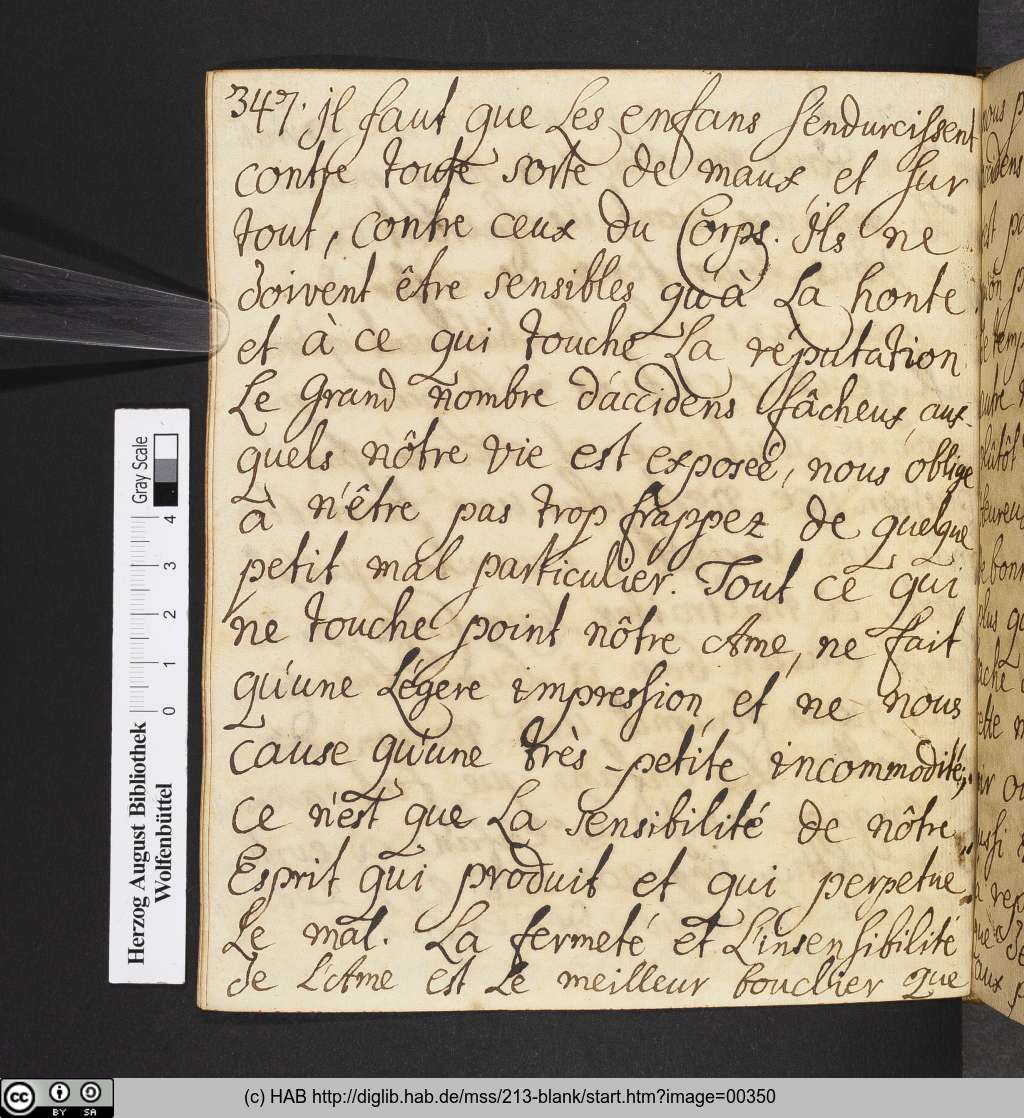 347. jl faut que Les enfans s'endurcissent
contre toute sorte de maux et sur
tout, contre ceux du Corps. ils ne
doivent être sensibles qu'à La honte
et à ce qui touche La réputation
Le grand nombre d'accidens fâcheux, aux-
quels nôtre vie est exposeé, nous oblige
à n'être pas trop frappez de quelque
petit mal particulier. Tout ce qui
ne touche point nôtre Ame, ne fait
qu'une Légere impression, et ne nous
cause qu'une très-petite incommodité;
ce n'est que La sensibilité de nôtre
Esprit qui produit et qui perpetue
Le mal. La fermeté et L'insensibilité
de L'Ame est Le meilleur bouclier que
Herzog August Bibliothek
Wolfenbüttel
Gray Scale
0 1 2 3 4
(c) HAB http://diglib.hab.de/mss/213-blank/start.htm?image=00350
cc BY SA